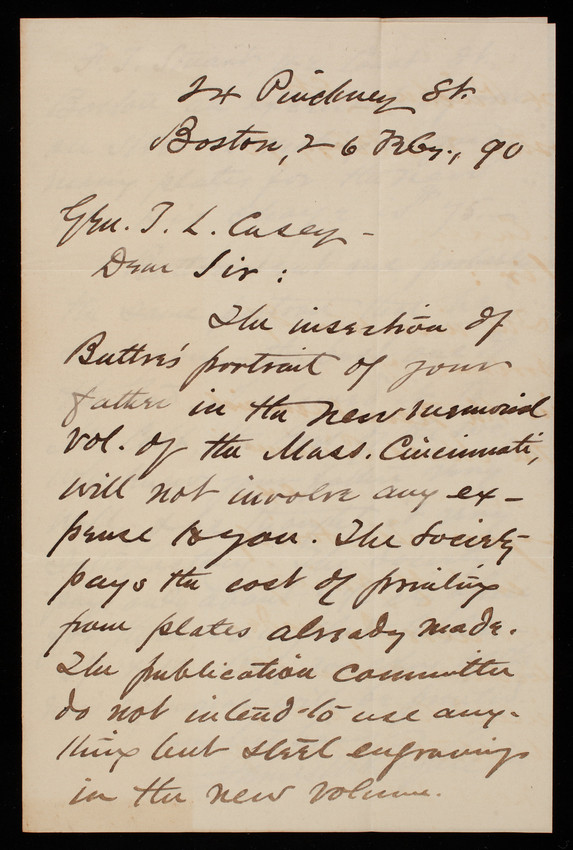 24 Pinckney St.
Boston, 26 Feby., 90
Gen. T. L. Casey -
Dear Sir:
The insertion of
Buttre's portrait of your
father in the new memorial
vol. of the Mass. Cincinnati,
will not involve any ex-
pense to you. The Society
pays the cost of printing
from plates already made.
The publication committee
do not intend to use any-
thing but steel engravings
in the new volume.